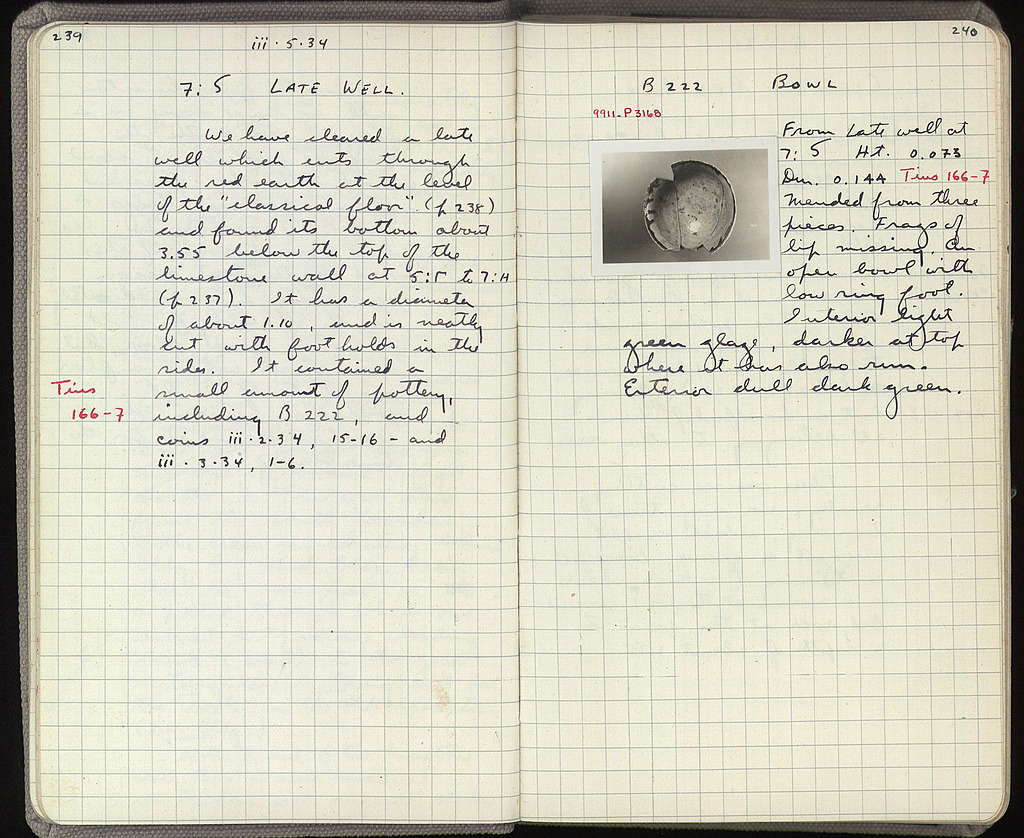 239
iii · 5 · 34
7: 5 LATE WELL.
We have cleared a late
well which cuts through
the red earth at the level
of the "classical floor". (p 238)
and found its bottom about
3.55 below the top of the
limestone wall at 5:Γ to 7:A
(p 237). It has a diameter
of about 1.10, and is neatly
cut with foot holds in the
sides. It contained a
small amount of pottery,
including B 222, and
coins iii · 2 · 34, 15-16 - and
iii · 3 · 34, 1-6.
Tins
166-7
240
B 222 BOWL
9911-P 3168
From Late well at
7: 5 Ht. 0.073
Dm. 0.144 Tins 166-7
Mended from three
pieces. Frags of
lip missing. An
open bowl with
low ring foot.
Interior light
green glaze, darker at top
where it has also run.
Exterior dull dark green.